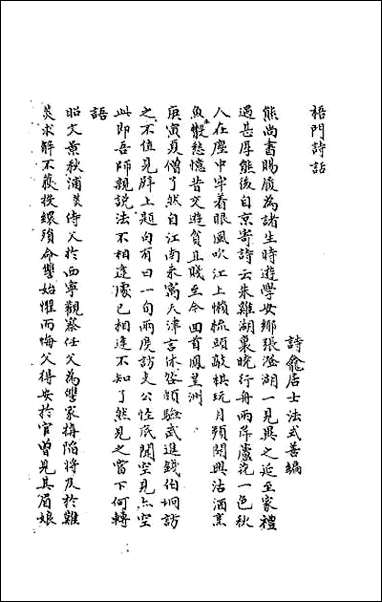 梧門詩話
詩龕居士法式善編
熊尚書賜履為諸生時遊學安鄉張澹湖一見異之延至家禮
遇甚厚熊後自京寄詩云朱雞湖裏晚行舟兩岸蘆花一色秋
人在塵中牢着眼風吹江上懶梳頭敲棋玩月頻開興沽酒烹
魚髮愁憶昔交遊貧且賤至今回首鳳皇洲
庚寅夏僧了然自江南來寓天津言休咎頗驗武進錢伯坰訪
之不值見壁上題句有曰一句兩房訪文公性民閒空見空
此即吾師親說法不相逢處已相逢不知了然見之當下何轉
語
昭文景秋浦侍父於西寧觀察任父為讐家搆陷將及於難
炎求解不獲投繯殞命讐始懼而悔父得安於官曾見其眉娘